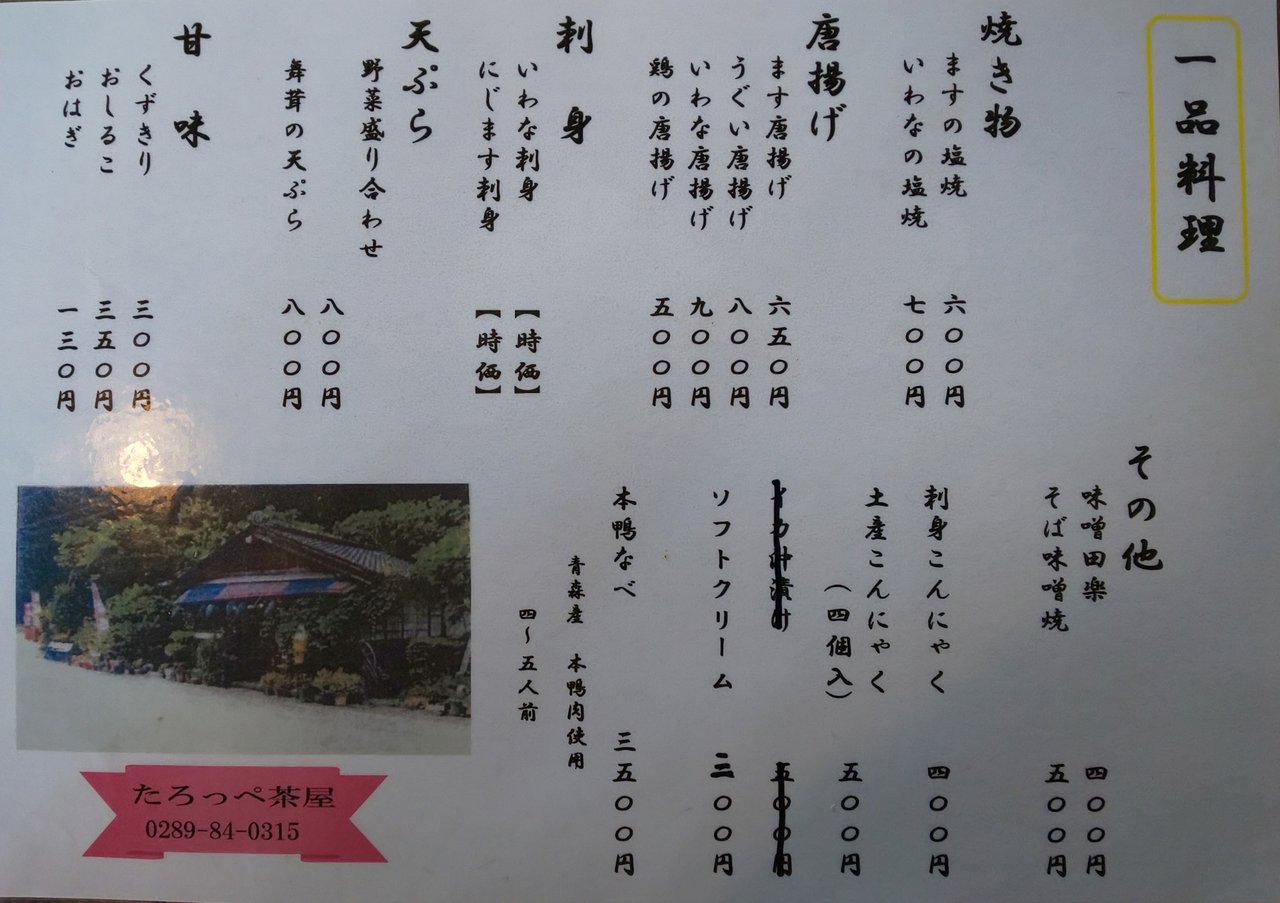 一品料理
焼き物
ますの塩焼 六〇〇円
いわなの塩焼 七〇〇円
唐揚げ
ます唐揚げ 六五〇円
うぐい唐揚げ 八〇〇円
いわな唐揚げ 九〇〇円
鶏の唐揚げ 五〇〇円
刺身
いわな刺身 【時価】
にじます刺身 【時価】
天ぷら
野菜盛り合わせ 八〇〇円
舞茸の天ぷら 八〇〇円
甘味
くずきり 三〇〇円
おしるこ 三五〇円
おはぎ 一三〇円
その他
味噌田楽 四〇〇円
そば味噌焼 五〇〇円
刺身こんにゃく 四〇〇円
土産こんにゃく
（四個入） 五〇〇円
イカ沖漬け 五〇〇円
ソフトクリーム 三〇〇円
本鴨なべ 三五〇〇円
青森産 本鴨肉使用
四～五人前
たろっぺ茶屋
0289-84-0315